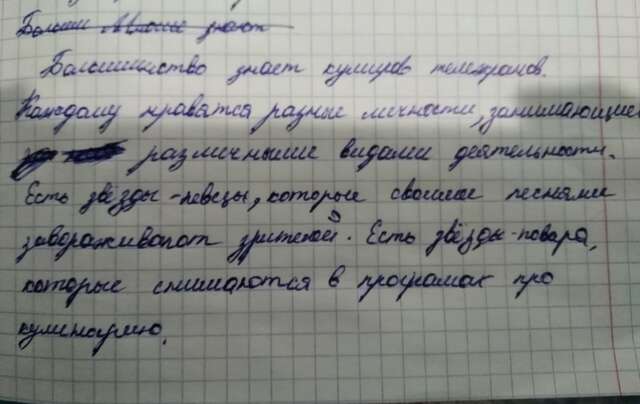 Больши Многие знают
Большинство знает кумиров телеэкранов.
Каждому нравятся разные личности, занимающие
различными видами деятельности.
Есть звёзды-певцы, которые своими песнями
завораживают зрителей. Есть звёзды-повара,
которые снимаются в програмах про
кулинарию.